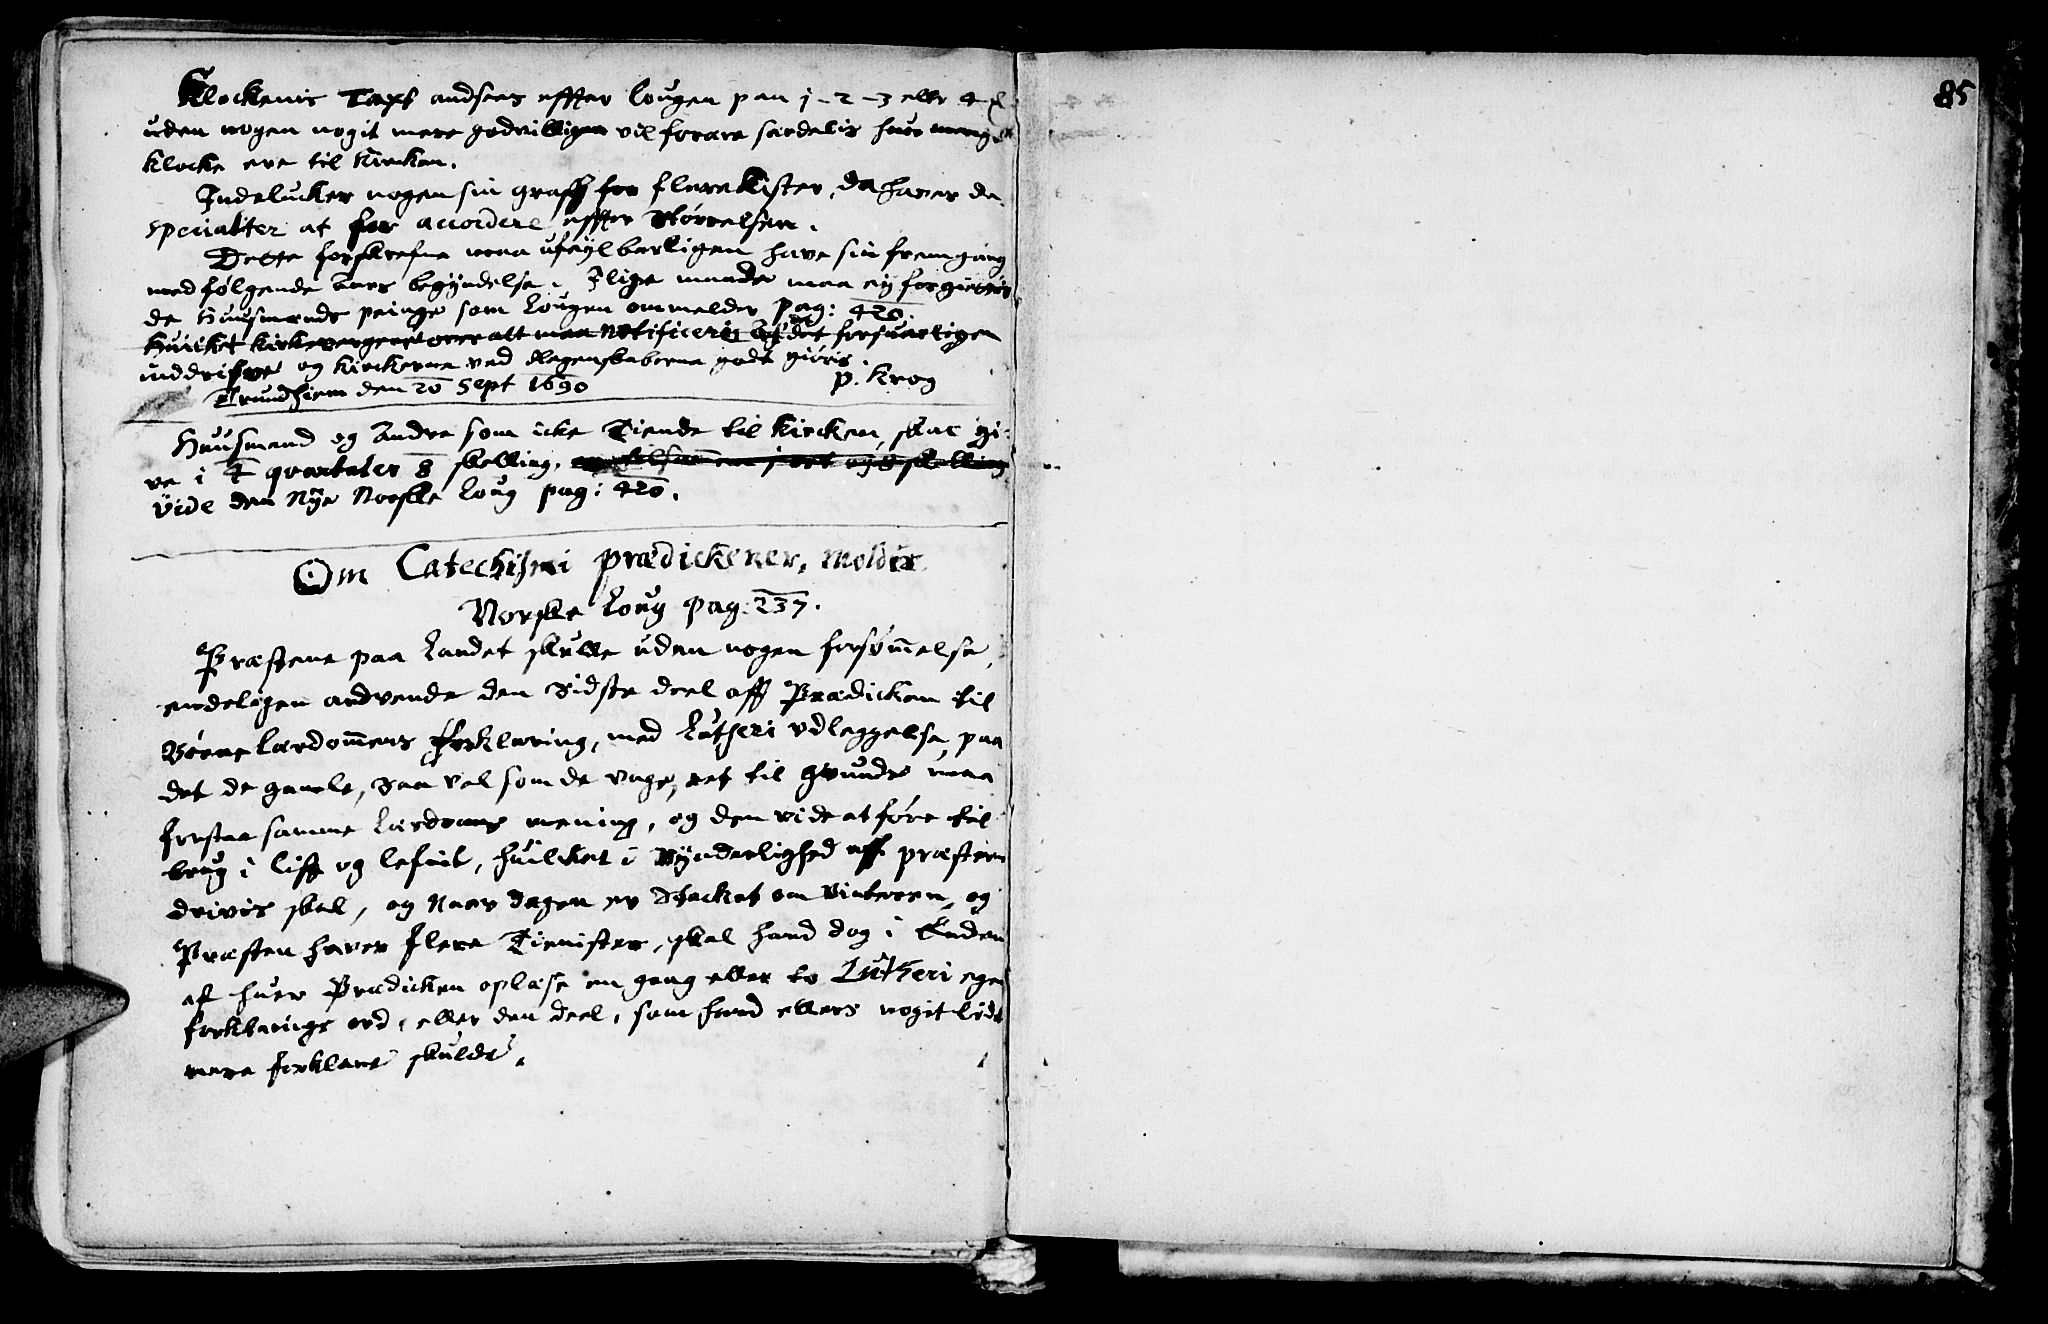 Klockenis Taxt andsees effter lougen paa 1-2-3 eller 4
uden nogen nogit mere godvilligen vil forære særdelis hvor mang
klocke ere til Kircken.
Indelucker nogen sin graff for flere Kister, da haver de
specialiter at for accordere effter Størrelsen.
Dette forskrefne maa ufeylbarligen have sin fremgang
med følgende Aars begyndelse. Ilige maade maa ey forgiettis
de Huusmænds peinge som Lougen ommelder pag: 420.
Huilket kirkevergerne over alt maa Notificeris at det forsvarligen
inddrifves og Kirckerne ved Regenskaberne godt giøris.
Trundhiem den 20 Sept 1690 P. Krog
Huusmænd og Andre som icke Tiende til Kircken, skal gi-
ve i 4 qvartaler 8 skelling,
Vide den Nye Norske Loug pag: 420.
Om Catechismi prædickener, melder
Norske Loug pag. 237.
Præstene paa Landet skulle uden nogen forsømelse,
endeligen andvende den Sidste deel aff Prædicken til
Børne lærdomens forklaring, med Lutheri udleggelse, paa
det de gamle, saa vel som de unge, ret til grunde maa
forstaa samme Lærdoms mening, og den vide at føre til
brug i liff og lefnit, huilket i Synderlighed aff præsten
drivis skal, og Naar dagen er Stacket om Vinteren, og
Præsten haver flere Tienister, skal hand dog i Enden
af huer Prædicken oplæse en gang eller to Lutheri egen
forklarings ord, eller den deel, som hand ellers nogit lidt
mere forklare skulde.
85